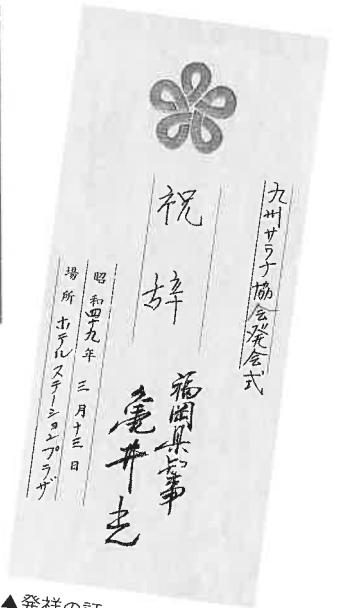 九州サウナ協会発会式
祝辞
福岡県知事
亀井光
昭和四十九年 三月十三日
場所 ホテルステーションプラザ
▲発祥の証